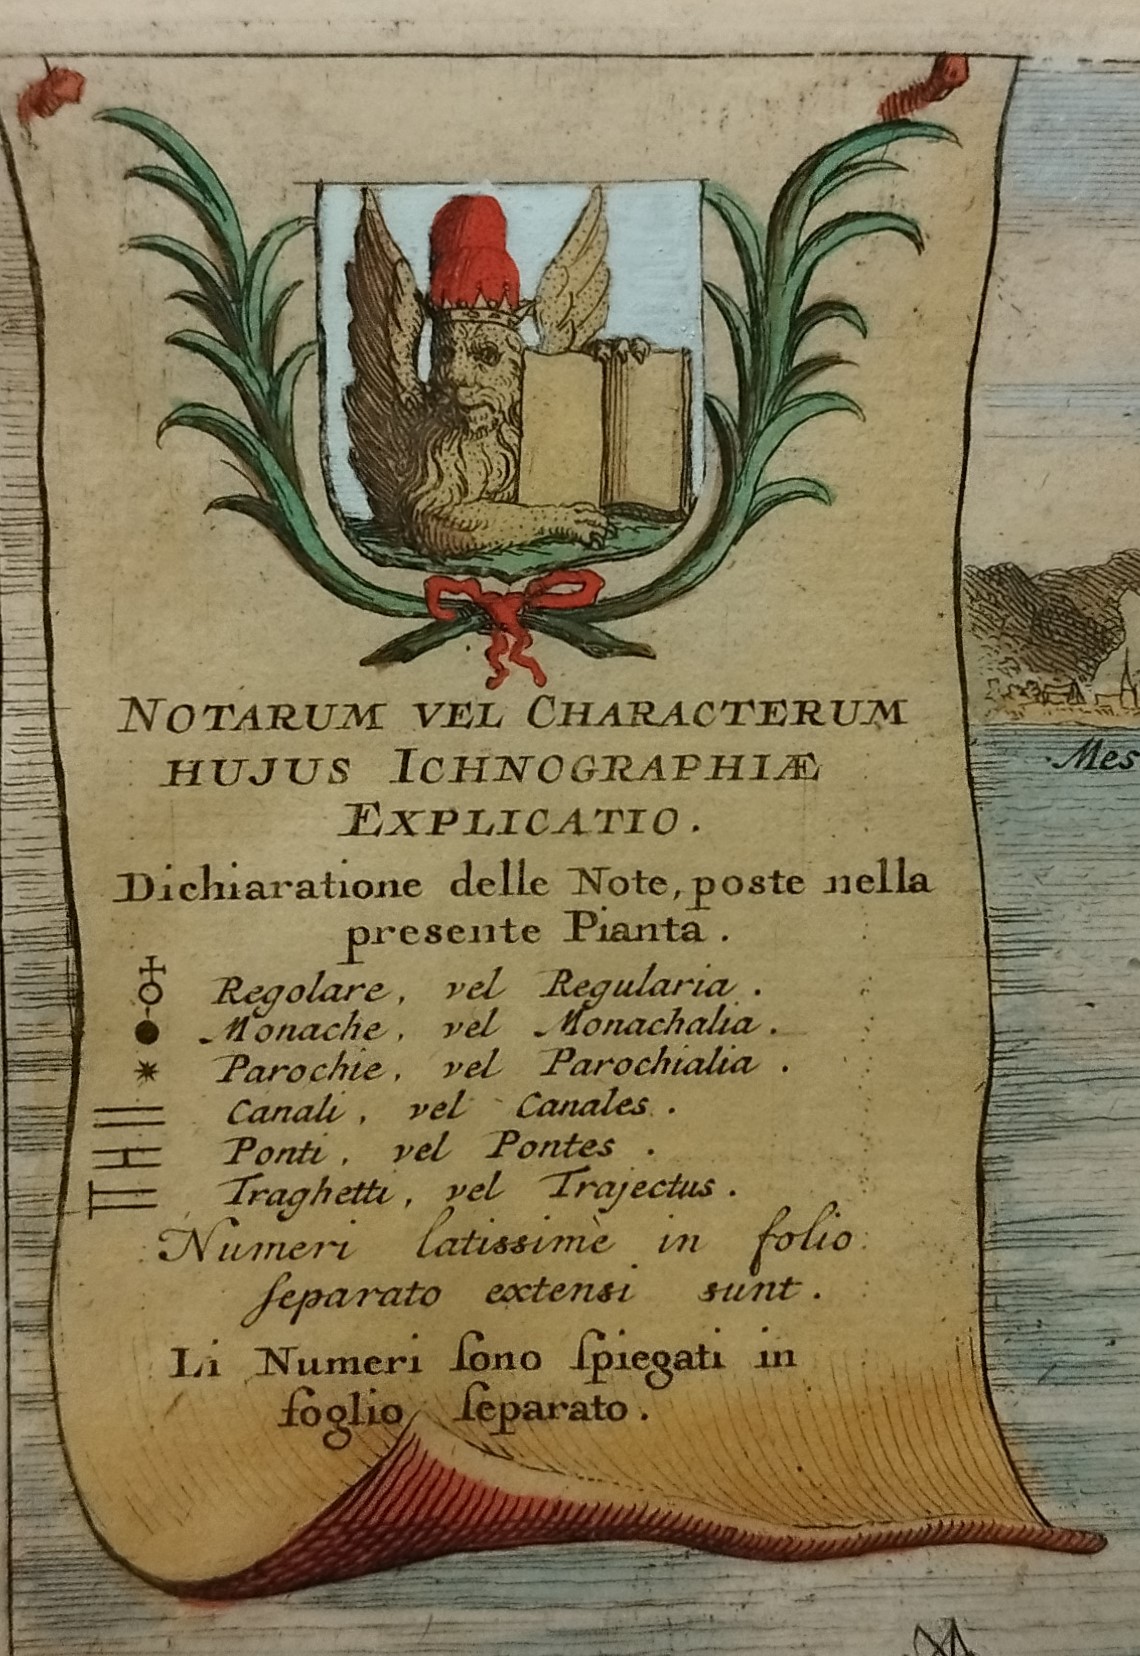 NOTARUM VEL CHARACTERUM
HUJUS ICHNOGRAPHIÆ
EXPLICATIO.
Dichiaratione delle Note, poste nella
presente Pianta.
Regolare, vel Regularia.
Monache, vel Monachalia.
Parochie, vel Parochialia.
Canali, vel Canales.
Ponti, vel Pontes.
Traghetti, vel Trajectus.
Numeri latissimè in folio
ſeparato extensi sunt.
Li Numeri ſono ſpiegati in
foglio ſeparato.